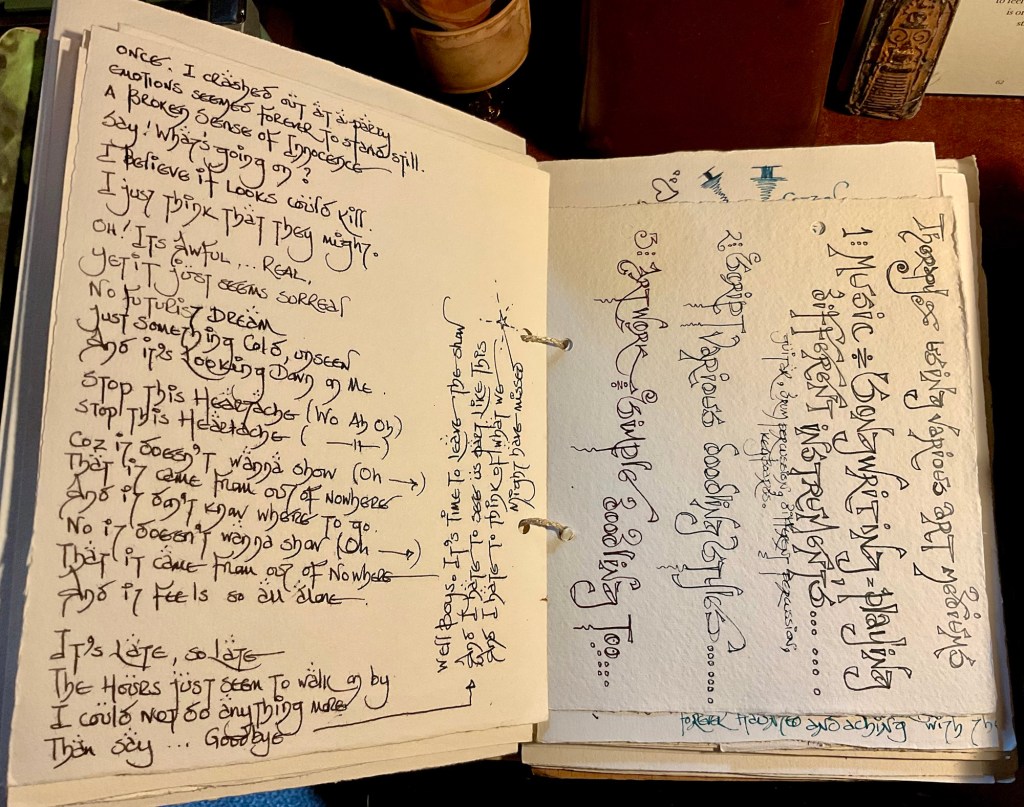 ONCE. I crashed out at a party
Emotions seemed forever to stand still.
A Broken Sense of Innocence
Say! What's going on?
I Believe if Looks could kill
I just think that they might.
OH! ITS AWFUL... REAL,
yet it just seems sorreal
No futurist DREAM
just something Cold, unseen
And it's Looking Down on Me.
Stop This Heartache (Wo Ah Oh)
Stop This Heartache ( —11— )
Coz it doesn't wanna show (Oh →)
That it came from out of Nowhere
And it don't know where to go.
No it doesn't wanna show (Oh →)
That it came from out of Nowhere
And it feels so all alone.
It's Late, so Late
The Hours just seem to walk on by
I could not do anything more
Than say ... Goodbye
Well Boys. It's Time to leave the show
And I hate to see us part like this
And I hate to think of what we
Might have missed
Therapy using various art mediums
1: Music = Songwriting = playing
different instruments.... ... .
guitar, drum percussion, different percussion,
keyboards.
2: Script Various doodling styles.......
3: Artwork = simple doodling too.....
to feel
is o
st
62